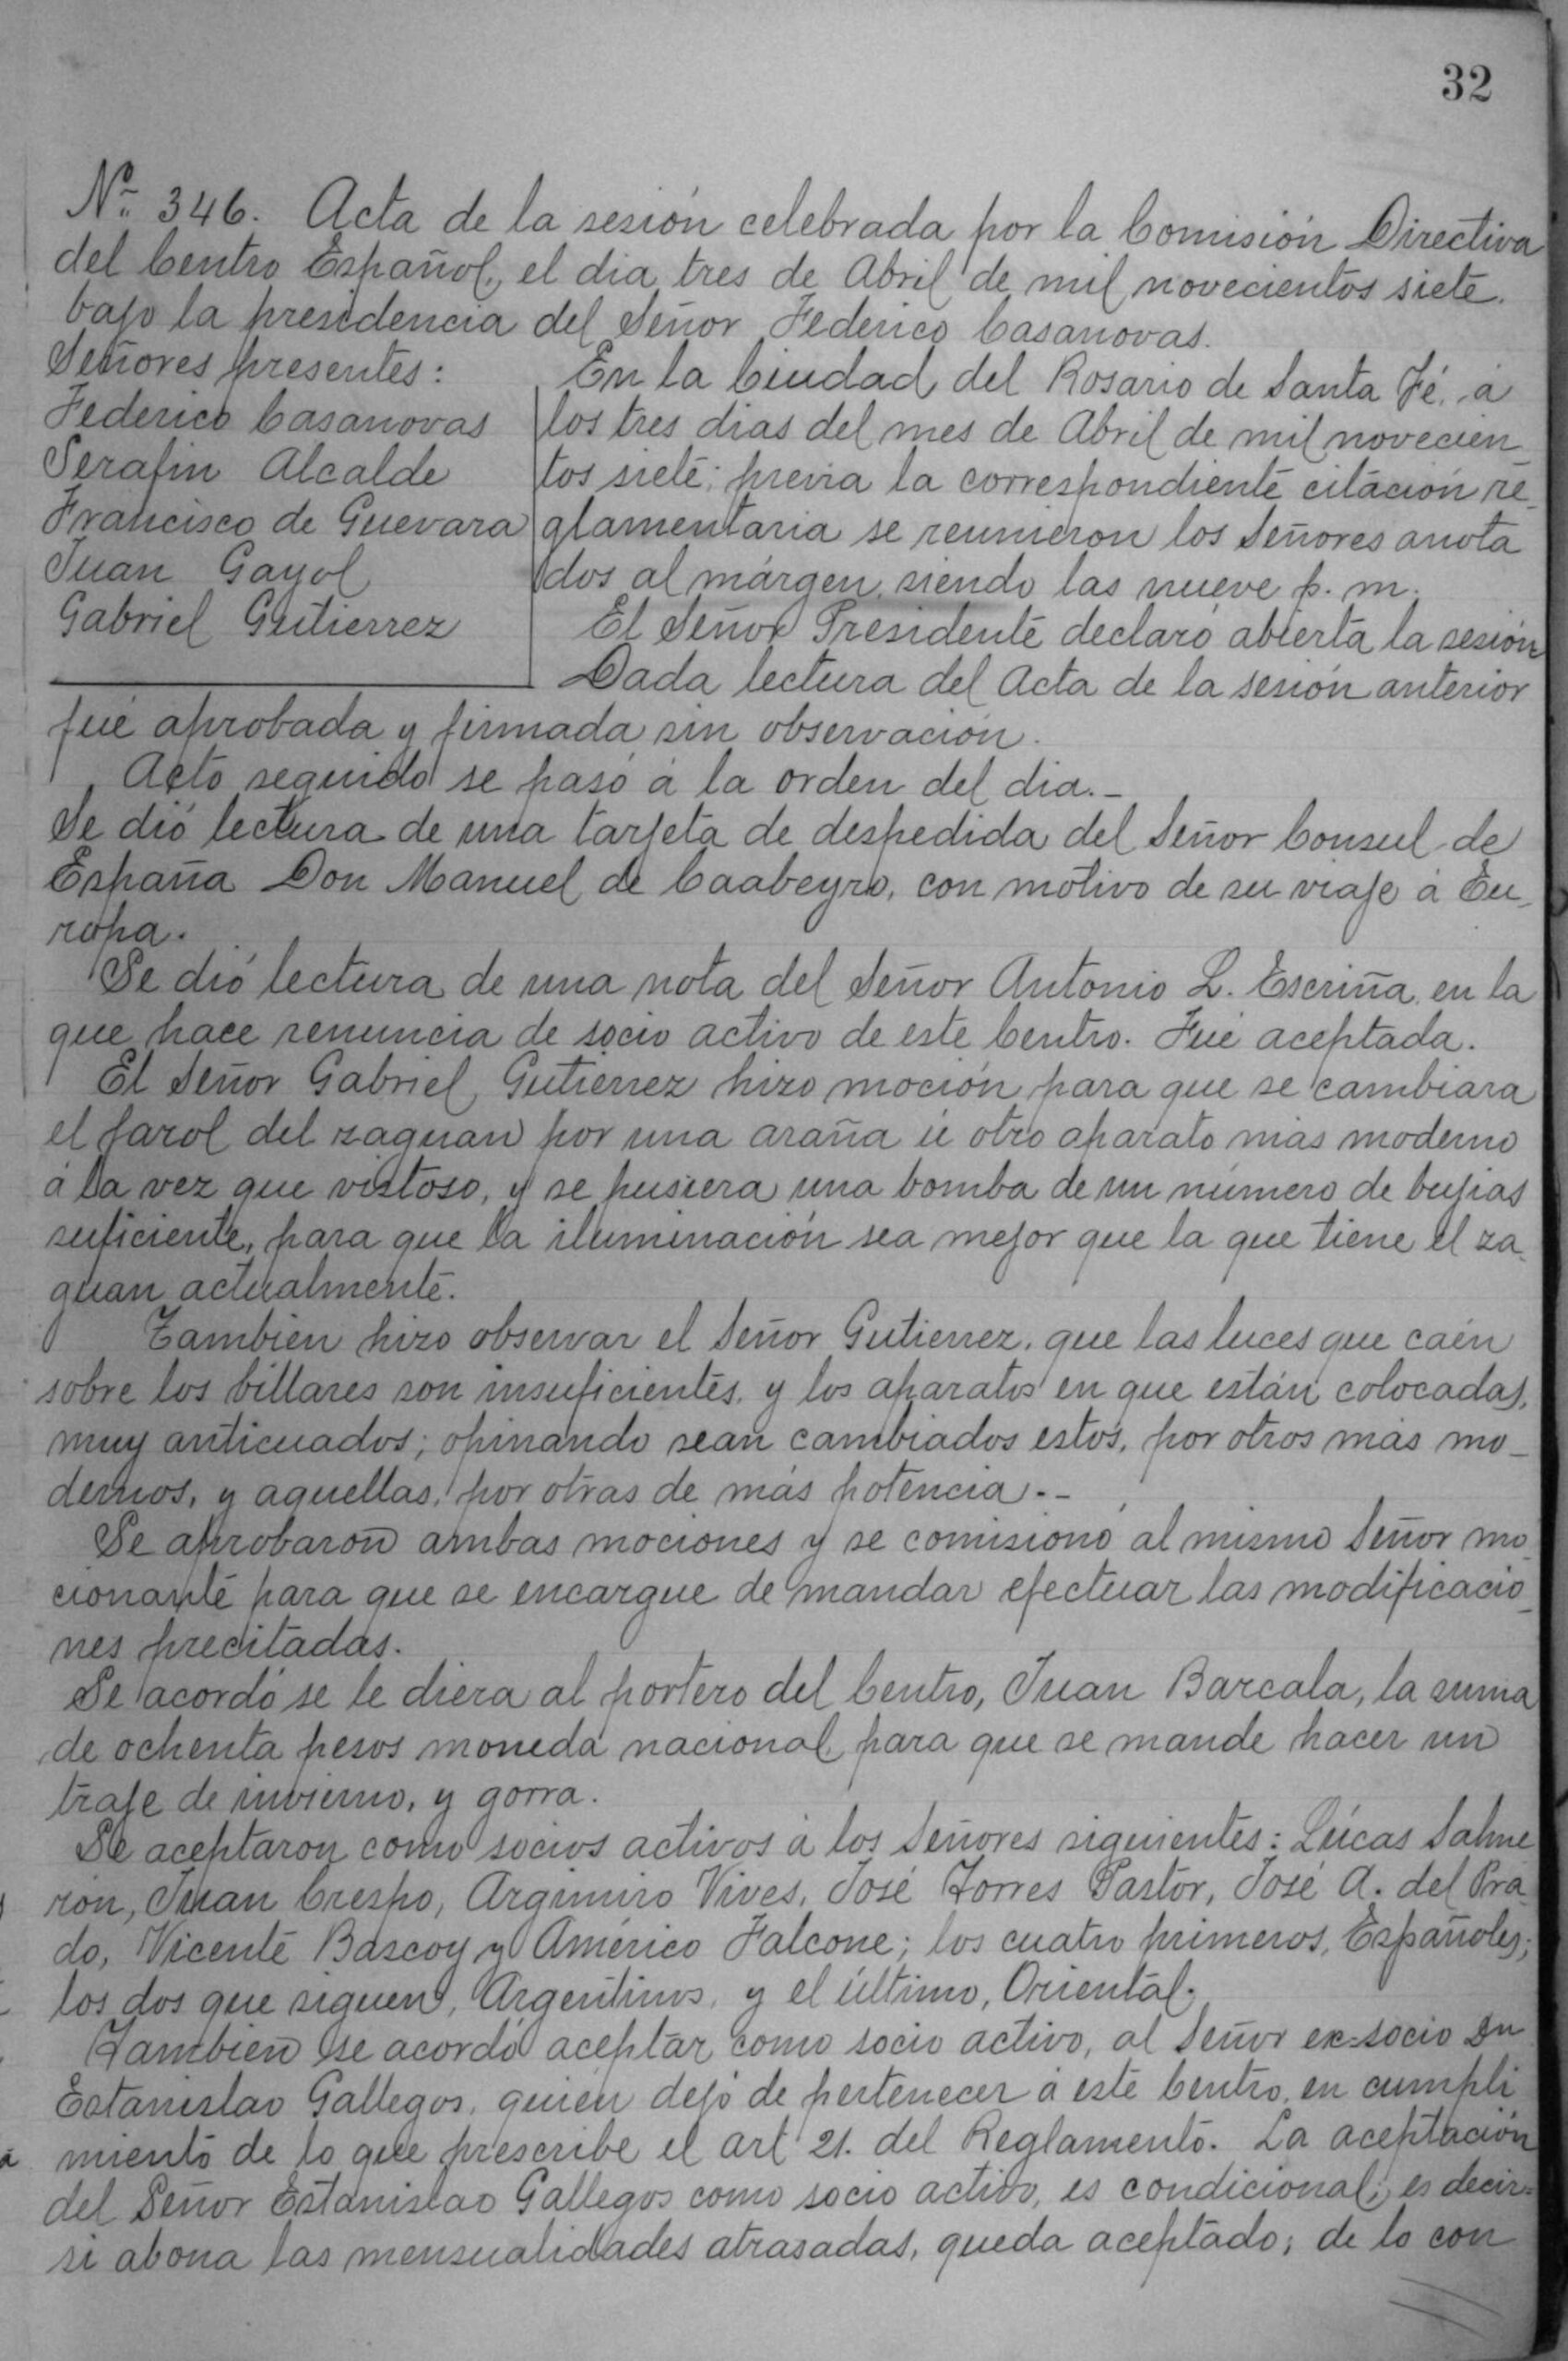 32
Nº 346. Acta de la sesión celebrada por la Comisión Directiva
del Centro Español, el dia tres de Abril de mil novecientos siete.
bajo la presidencia del Señor Federico Casanovas.
Señores presentes:
Federico Casanovas
Serafin Alcalde
Francisco de Guevara
Juan Gayol
Gabriel Gutierrez
En la Ciudad del Rosario de Santa Fé, á
los tres dias del mes de Abril de mil novecien
tos siete; previa la correspondiente citación re_
glamentaria se reunieron los Señores anota
dos al márgen, siendo las nueve p. m.
El Señor Presidente declaró abierta la sesión
Dada lectura del Acta de la sesión anterior
fué aprobada y firmada sin observación.
Acto seguido se pasó á la orden del dia._
Se dió lectura de una tarjeta de despedida del Señor Consul de
España Don Manuel de Caabeyro, con motivo de su viaje á Eu_
ropa.
Se dió lectura de una nota del Señor Antonio L. Escriña, en la
que hace renuncia de socio activo de este Centro. Fué aceptada.
El Señor Gabriel Gutierrez hizo moción para que se cambiara
el farol del zaguan por una araña ú otro aparato más moderno
á la vez que vistoso, y se pusiera una bomba de un número de bujias
suficiente, para que la iluminación sea mejor que la que tiene el za_
guan actualmente.
Tambien hizo observar el Señor Gutierrez, que las luces que caén
sobre los billares son insuficientes, y los aparatos en que están colocadas,
muy anticuados; opinando sean cambiados estos, por otros más mo_
dernos, y aquellas, por otras de más potencia._
Se aprobaron ambas mociones y se comisionó al mismo Señor mo_
cionante para que se encargue de mandar efectuar las modificacio_
nes precitadas.
Se acordó se le diera al portero del Centro, Juan Barcala, la suma
de ochenta pesos moneda nacional para que se mande hacer un
traje de invierno, y gorra.
Se aceptaron como socios activos á los Señores siguientes: Lúcas Salme
rón, Juan Crespo, Argimiro Vives, José Torres Pastor, José A. del Pra
do, Vicente Bascoy y Américo Falcone; los cuatro primeros, Españoles;
los dos que siguen, Argentinos, y el último, Oriental.
Tambien se acordó aceptar como socio activo, al Señor ex-socio Dn
Estanislao Gallegos, quién dejó de pertenecer á este Centro, en cumpli
miento de lo que prescribe el art 21. del Reglamento. La aceptación
del Señor Estanislao Gallegos como socio activo, es condicional; es decir=
si abona las mensualidades atrasadas, queda aceptado; de lo con